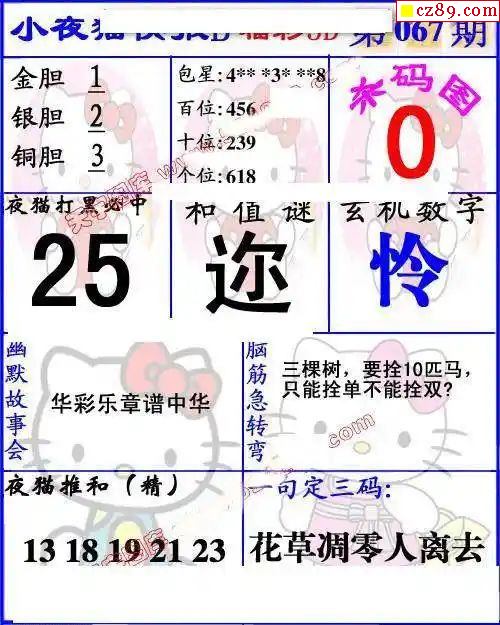 cz89.com
小夜猫快报D 福彩3D 第067期
金胆 1
银胆 2
铜胆 3
包星: 4** *3* **8
百位: 456
十位: 239
个位: 618
杀码图
0
夜猫打黑必中
25
和值谜
迩
玄机数字
怜
幽默故事会
华彩乐章谱中华
脑筋急转弯
三棵树，要拴10匹马，
只能拴单不能拴双?
夜猫推和（精）
13 18 19 21 23
一句定三码:
花草凋零人离去